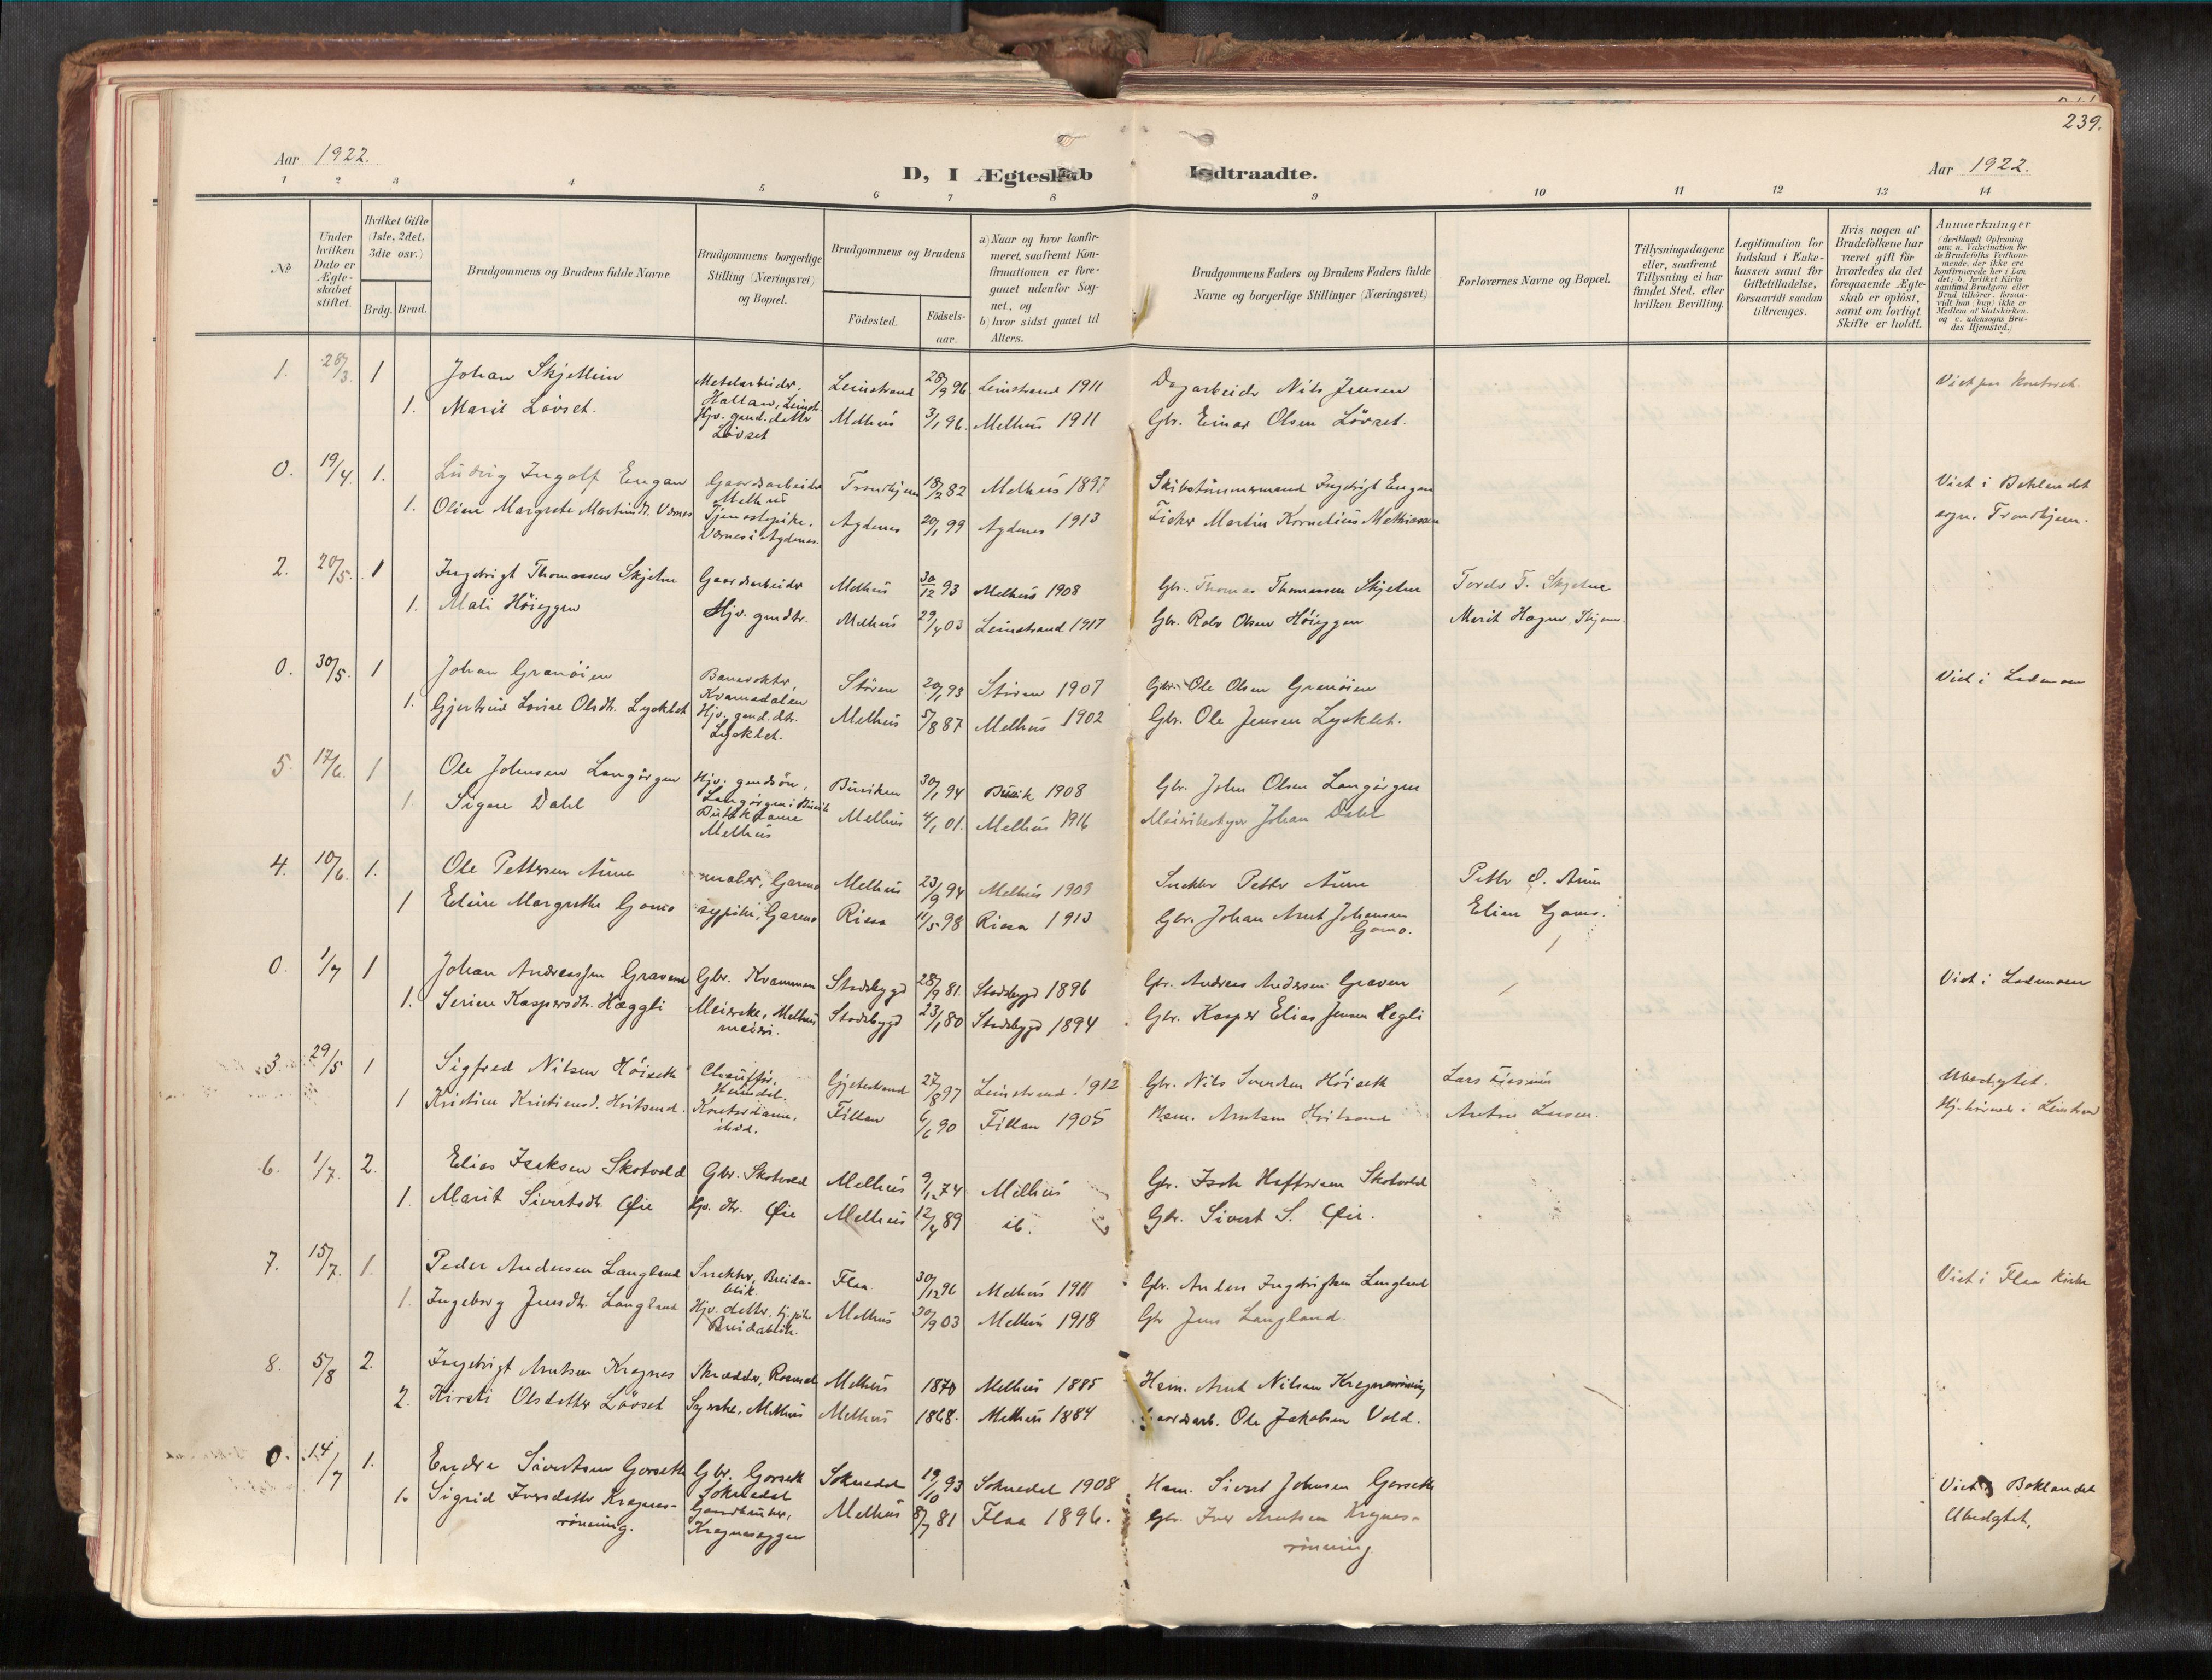 239.
Aar 1922.
D, I Ægteskab Indtraadte.
Aar 1922.
1 2 3 4 5 6 7 8 9 10 11 12 13 14
No
Under hvilken Dato er Ægteskabet stiftet.
Hvilket Gifte (1ste, 2det, 3die osv.)
Brdg. Brud.
Brudgommens og Brudens fulde Navne
Brudgommens borgerlige Stilling (Næringsvei) og Bopæl.
Brudgommens og Brudens
Fødested.
Fødselsaar.
a) Naar og hvor konfirmeret, saafremt Konfirmationen er foregaaet udenfor Sognet, og
b) hvor sidst gaaet til Alters.
Brudgommens Faders og Brudens Faders fulde Navne og borgerlige Stillinger (Næringsvei)
Forlovernes Navne og Bopæl.
Tillysningsdagene eller, saafremt Tillysning ei har fundet Sted, efter hvilken Bevilling.
Legitimation for Indskud i Enkekassen samt for Giftetilladelse, forsaavidt saadan tiltrænges.
Hvis nogen af Brudefolkene har været gift før hvorledes da det foregaaende Ægteskab er opløst, samt om lovligt Skifte er holdt.
Anmærkninger
(deriblandt Oplysning om: a. Vakcination for de Brudefolks Vedkommende, der ikke ere konfirmerede her i Landet; b. hvilket Kirkesamfund Brudgom eller Brud tilhører, forsaavidt han (hun) ikke er Medlem af Statskirken. og c. udensogns Brudes Hjemsted.)
1. 28/3. 1 Johan Skjetlein Metalarbeider, Hallan, Leinst. Leinstrand 28/9 96 Leinstrand 1911 Dagarbeider Nils Jensen Viet paa Kontoret.
1. Marit Lövset. Hjv. gaard.datter Lövset Melhus 3/1 96. Melhus 1911 Gbr. Einar Olsen Lövset.
0. 19/4. 1. Ludvig Ingolf Engan Gaardsarbeider Melhus Trondhjem 18/2 82 Melhus 1897 Skibstömmermand Ingebrigt Engan Viet i Baklandet
1. Oline Margrete Martinsdt. Værnes Tjenestepike, Værnes i Agdenes. Agdenes 20/1 99 Agdenes 1913 Fisker Martin Kornelius Mathiassen sogn. Trondhjem.
2. 20/5. 1 Ingebrigt Thomassen Skjetne Gaardsarbeider Melhus 30/12 93 Melhus 1908 Gbr. Thomas Thomassen Skjetne Tords T. Skjetne
1. Mali Höieggen Hjv. gmdtr. Melhus 29/4 03 Leinstrand 1917 Gbr. Rolv Olsen Höieggen Marit Hagen
0. 30/5. 1 Johan Granöien Banevokter, Kvamsdalen Stören 20/1 93 Stören 1907 Gbr. Ole Olsen Granöien Viet i Lademoen
1. Gjertrud Lovise Olsdtr. Lyeklet Hjv. gaard.dtr. Lyeklet. Melhus 5/8 87 Melhus 1902 Gbr. Ole Jensen Lyeklet.
5. 17/6. 1 Ole Johnsen Langörgen Hjv. gaardsön, Langörgen i Buvik Buviken 30/1 94 Buvik 1908 Gbr. John Olsen Langörgen
1 Signe Dahl Butikdame Melhus Melhus 4/1 01. Melhus 1916 Meieribestyrer Johan Dahl
4. 10/6. 1. Ole Pettersen Aune maler, Melhus 23/9 94 Melhus 1909 Snekker Petter Aune Petter O. Aune
1 Eline Margrethe Gomo sypike, Rissa 11/5 98 Rissa 1913 Gbr. Johan Arnt Johansen Gomo. Eline Gomo.
0. 1/7 1 Johan Andreassen Graven Gbr. Kvammen Stadsbygd 28/9 81. Stadsbygd 1896 Gbr. Andreas Andersen Graven Viet i Lademoen
1. Serine Kaspersdtr. Hæggli Meierske, Melhus meieri. Stadsbygd 23/1 80 Stadsbygd 1894 Gbr. Kasper Elias Jensen Hegli
3. 29/5 1 Sigfred Nilsen Höiseth Chauffør, Heimdal. Gjetestrand 27/8 97 Leinstrand 1912 Gbr. Nils Svendsen Höiseth Ubesdygtet.
1 Kristine Kristiansd. Hvitsand. Kontordame, ibid. Fillan 6/6 90 Fillan 1905 Hsm.
6. 1/7. 2. Elias Isaksen Skotvold Gbr. Skotvold Melhus 9/12 74 Melhus Gbr. Isak Skotvold
1. Marit Sivertsdtr. Øie Hjv. dtr. Øie Melhus 12/4 89 ib. Gbr. Sivert S. Øie.
7. 15/7. 1. Peder Andersen Langland Snekker, Breidablik Flaa 30/12 96 Melhus 1911 Gbr. Anders Ingebrigtsen Langland Viet i Flaa Kirke
1. Ingeborg Jensdtr. Langland Hjv. datter, tj.pike Breidablik. Melhus 30/9 03 Melhus 1918 Gbr Jens Langland.
8. 5/8 2. Ingebrigt Arntsen Kregnes Skrædder, Melhus 1870 Melhus 1885 Hsm. Arnt Nilsen Kregnesrönning
2. Kirsti Olsdatter Lövset Syerske, Melhus Melhus 1868. Melhus 1884 Gaardsarb. Ole Jakobsen Vold.
0. 14/7 1. Endre Sivertsen Gorseth Gbr. Gorseth Soknedal Soknedal 19/10 93 Soknedal 1908 Hsm. Sivert Johnsen Gorseth Viet i Baklandet
1. Sigrid Iversdatter Kregnesrönning. Kregneseggen Melhus 8/7 81 Flaa 1896. Gbr. Iver Arntsen Kregnesrönning